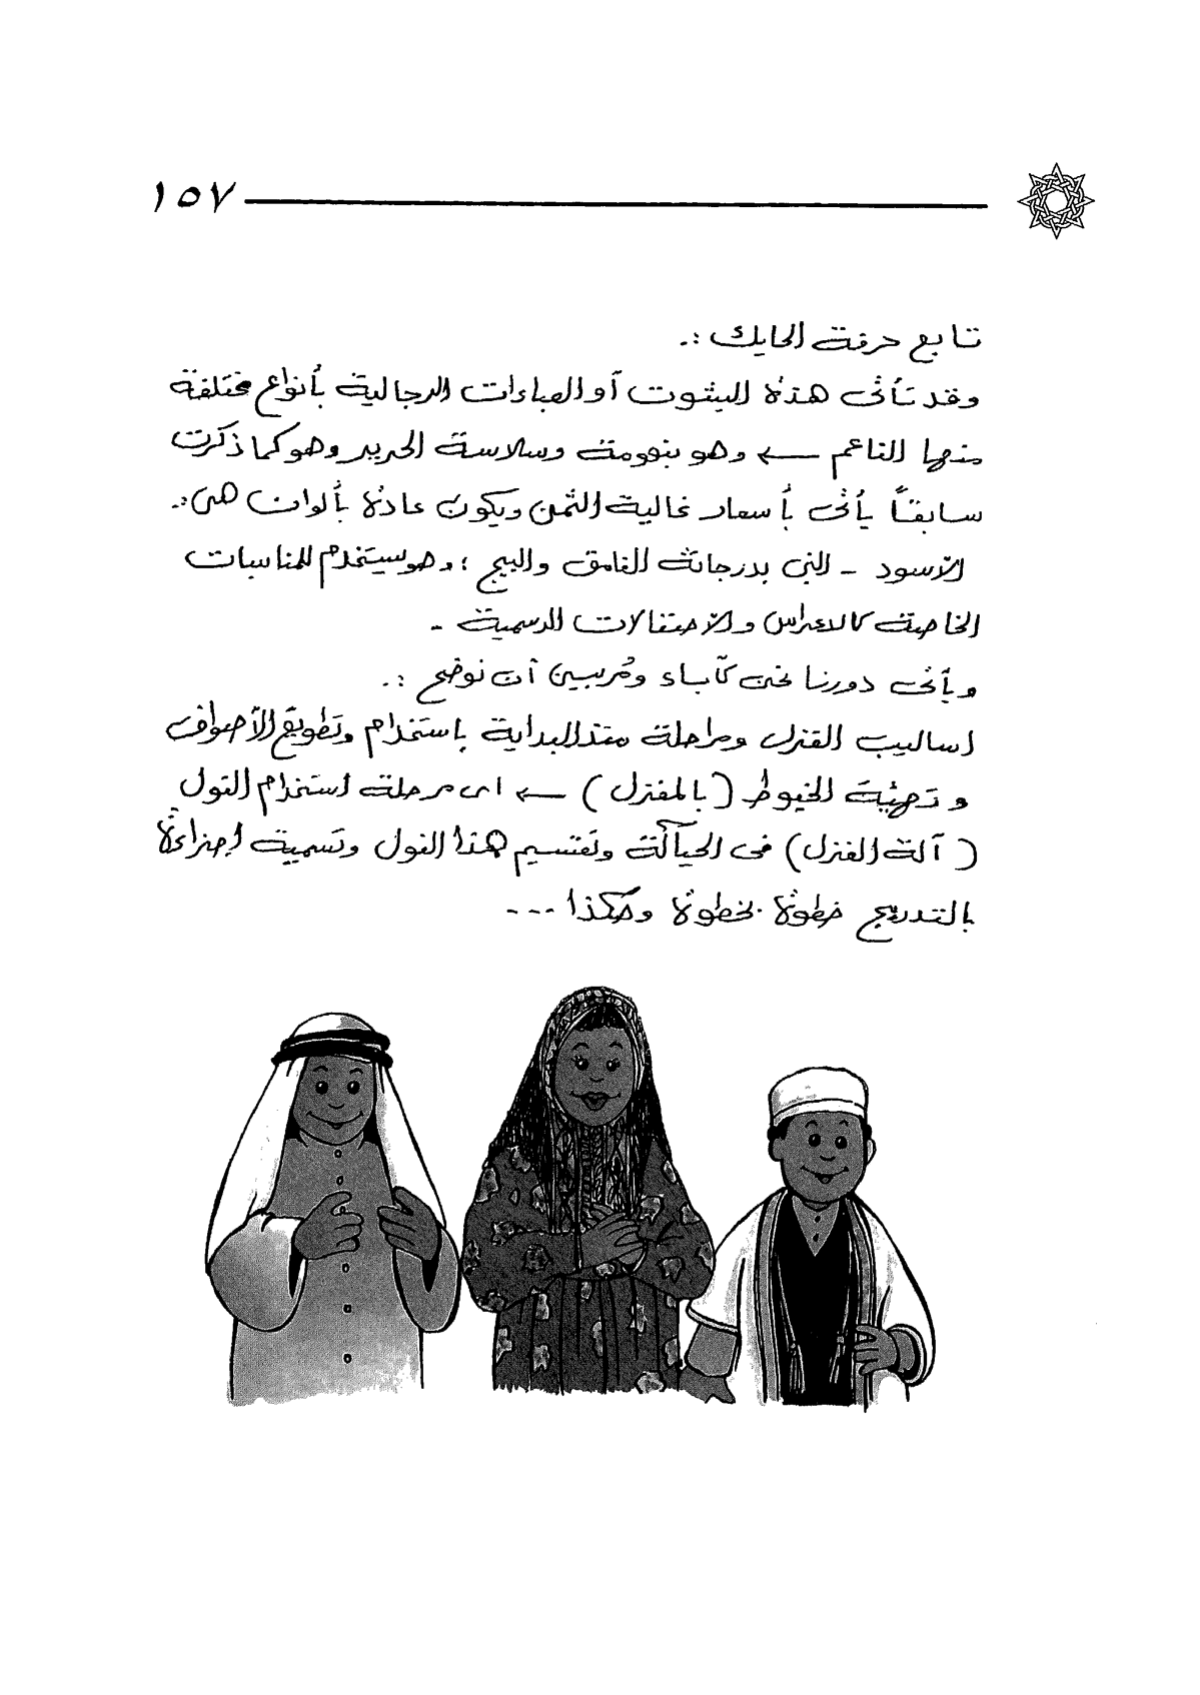 ١٥٧
تابع حرفة الحايك :.
وقد تأتى هذه البشوت أو العباءات الرجالية بأنواع مختلفة
منها الناعم ← وهو بنعومة وسلاسة الحرير وهو كما ذكرت
سابقاً يأتى بأسعار غالية الثمن ويكون عادة بألوان هى :.
الأسود - البنى بدرجاته الغامق والبيج ، وهو يستخدم للمناسبات
الخاصة كالاعراس والاحتفالات الرسمية -
ويأتى دورنا نحن كآباء ومُربيين أن نوضح :.
اساليب الغزل ومراحلة منذ البداية باستخدام وتطويع الأصواف
وتهيئة الخيوط (بالمغزل) ← الى مرحلة استخدام النول
(آلة الغزل) فى الحياكة وتقسيم هذا النول وتسمية إجزاءة
بالتدريج خطوة بخطوة وهكذا ...